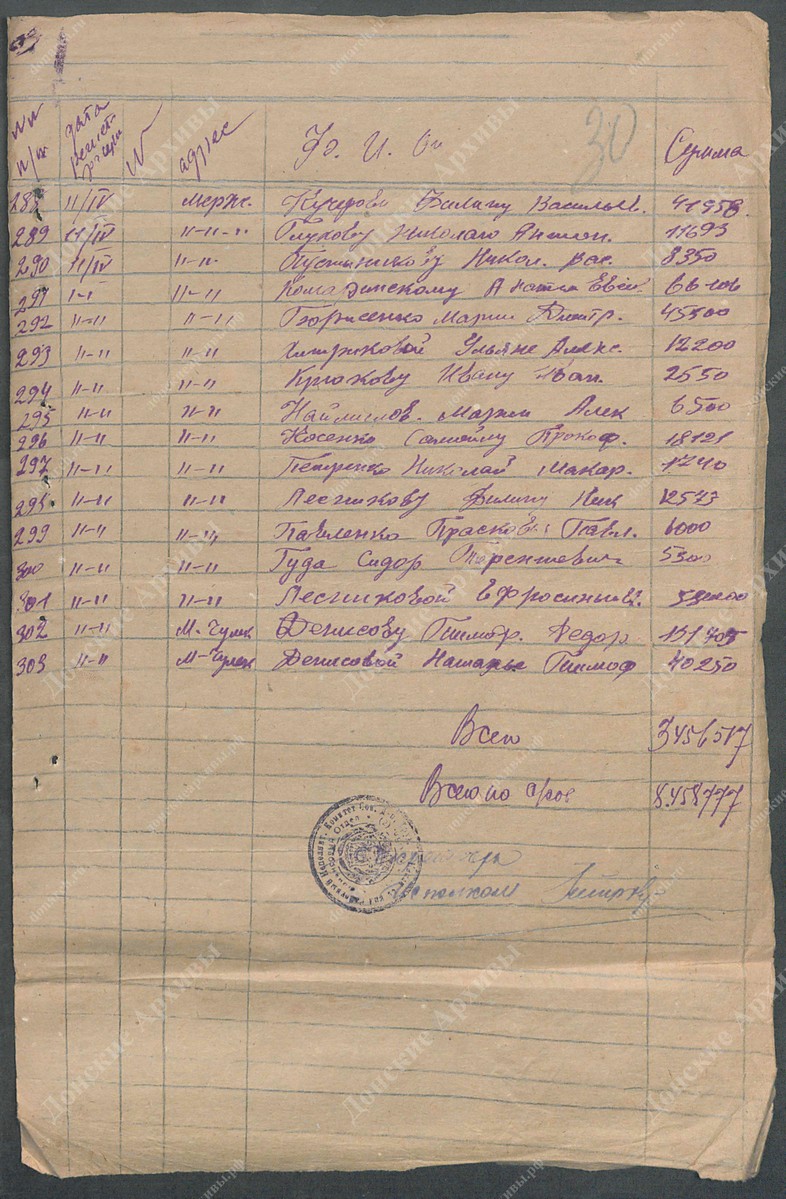 30
№№ п/п дата регистрации № адрес Ф. И. От Сумма
288 11/IV мерж. Кучерову Филипу Васильев. 41958
289 11/IV 11-11-11 Глухову Николаю Антон. 11693
290 11/IV 11-11- Пустынникову Никол. Вас. 8350
291 11-11 Комаринскому
292 11-11 11-11 Борисенко Марии Дмитр. 45300
293 11-11 11-11 Ульяне Алекс. 12200
294 11-11 11-11 Крюкову Ивану Иван. 2550
295 11-11 11-11 Марии Алек 6500
296 11-11 11-11 Косенко Самойлу Прокоф. 18121
297 11-11 11-11 Петренко Николай Макар. 1740
298 11-11 11-11 Лесникову Филипу Ник 12573
299 11-11 11-11 Павленко Прасковьи Павл. 6000
300 11-11 11-11 Гуда Сидор Терентиевич 5300
301 11-11 11-11 Лесниковой Ефросинье
302 11-11 М. Чулек Денисову Тимофр. Федор
303 11-11 М-Чулек Денисовой Наталье Тимоф 40250
Всего 3456517
Всего по с/сов 8.458777